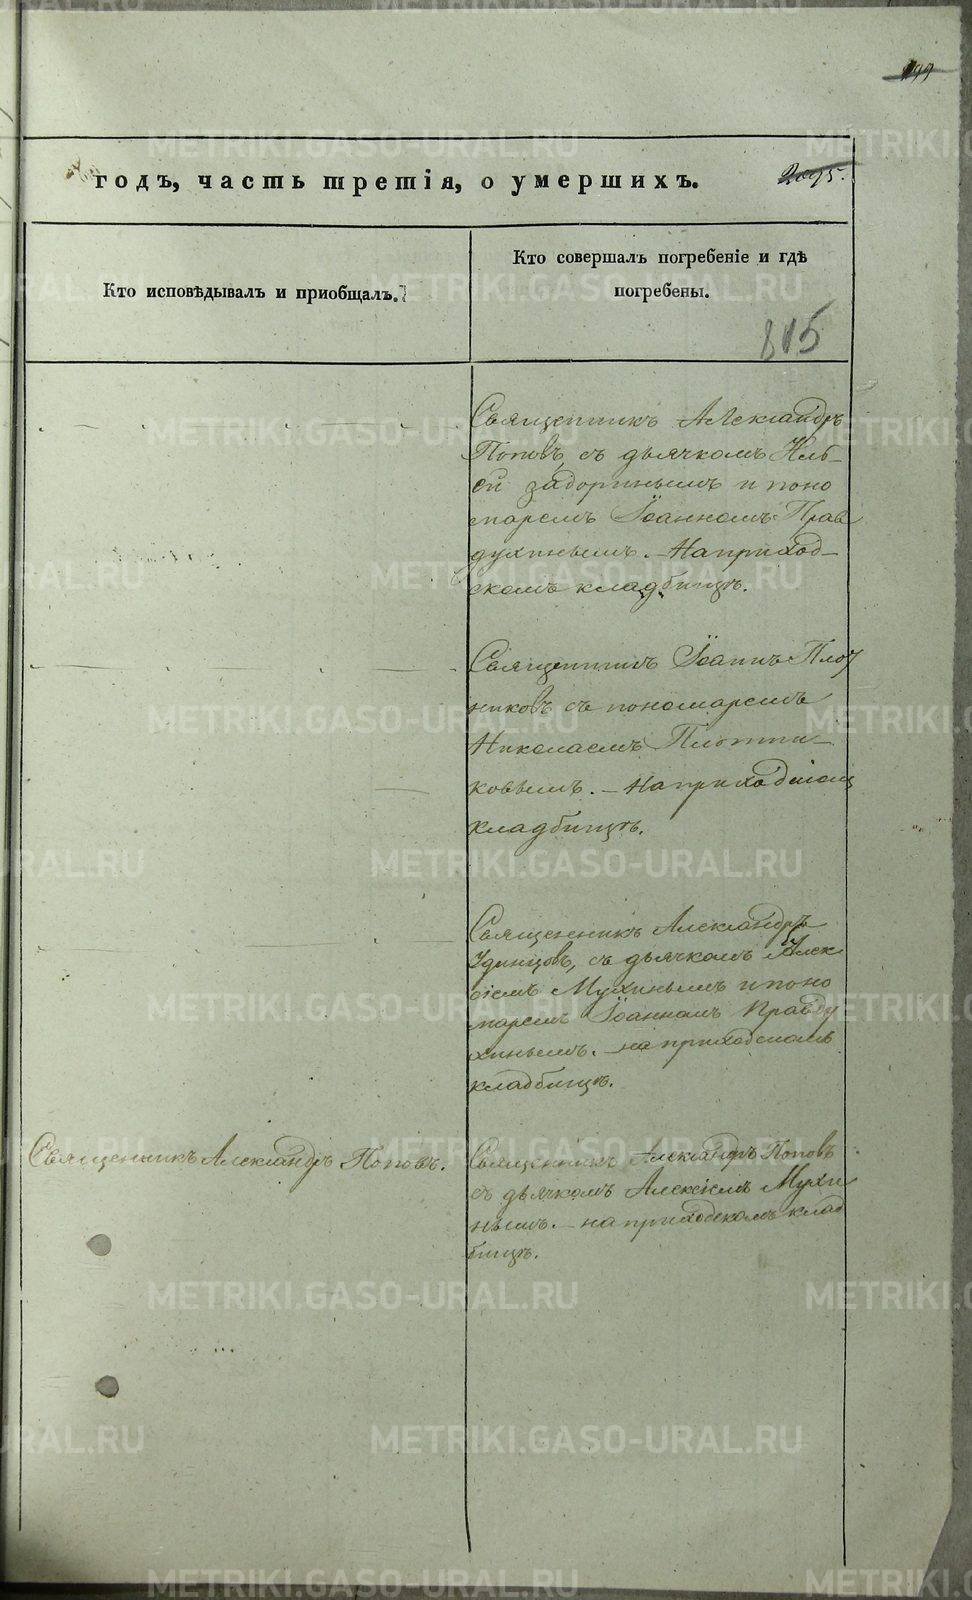 199
годъ, часть третія, о умершихъ.
2095.
Кто исповѣдывалъ и приобщалъ.
Кто совершалъ погребеніе и гдѣ
погребены.
815
Священникъ Александръ
Поповъ, съ дьячкомъ Иль-
ей Задоринымъ и поно
маремъ Іоанномъ Прав
духинымъ. – На приход-
скомъ кладбищѣ.
Священникъ Іоаннъ Плот
никовъ съ пономаремъ
Николаемъ Плотни-
ковымъ. – На приходскомъ
кладбищѣ.
Священникъ Александръ
Удинцовъ, съ дьячкомъ Алек
сіемъ Мухинымъ и поно
маремъ Іоанномъ Правду
хинымъ. – на приходскомъ
кладбищѣ.
Священникъ Александръ Поповъ.
Священникъ Александръ Поповъ
съ дьячкомъ Алексіемъ Мухи
нымъ. – на приходскомъ клад
бищѣ.
METRIKI.GASO-URAL.RU